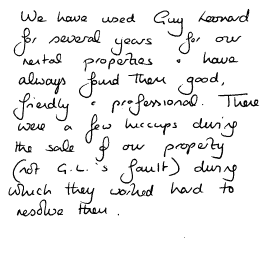 We have used Guy Leonard
for several years for our
rental properties & have
always found them good,
friendly & professional. There
were a few hiccups during
the sale of our property
(not G.L.'s fault) during
which they worked hard to
resolve them.